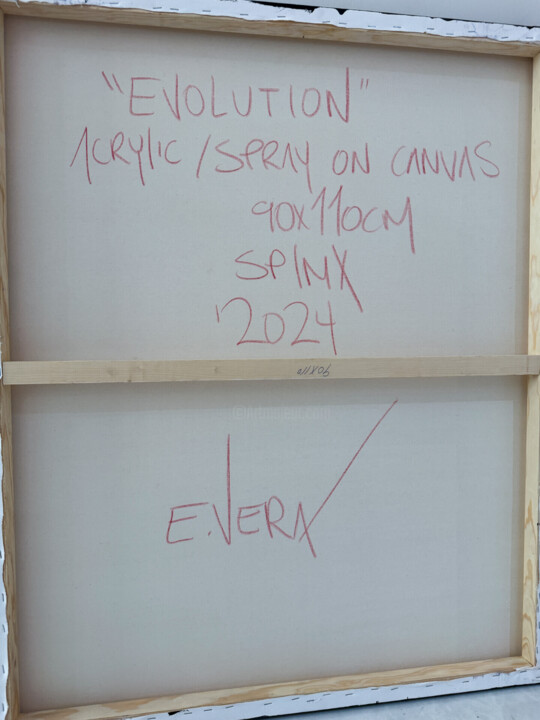 "EVOLUTION"
ACRYLIC / SPRAY ON CANVAS
90x110CM
SPINX
'2024
E.VERA